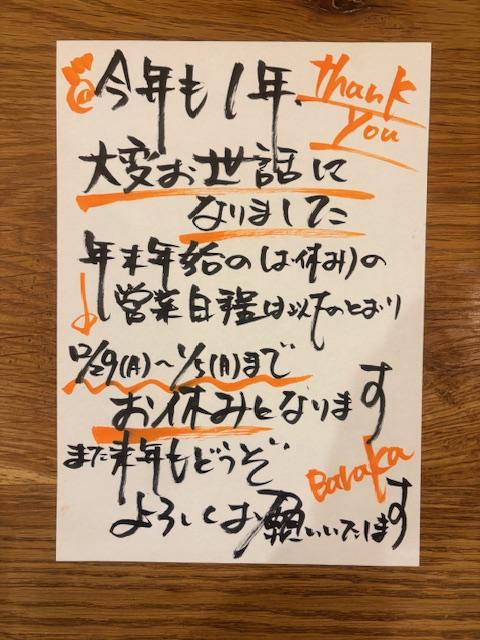 今年も1年、
thank
you
大変お世話に
なりました
年末年始の(お休み)の
営業日程は以下のとおり
12/29(月)〜1/5(月)まで
お休みとなります
また来年もどうぞ
Baraka
よろしくお願いいたします